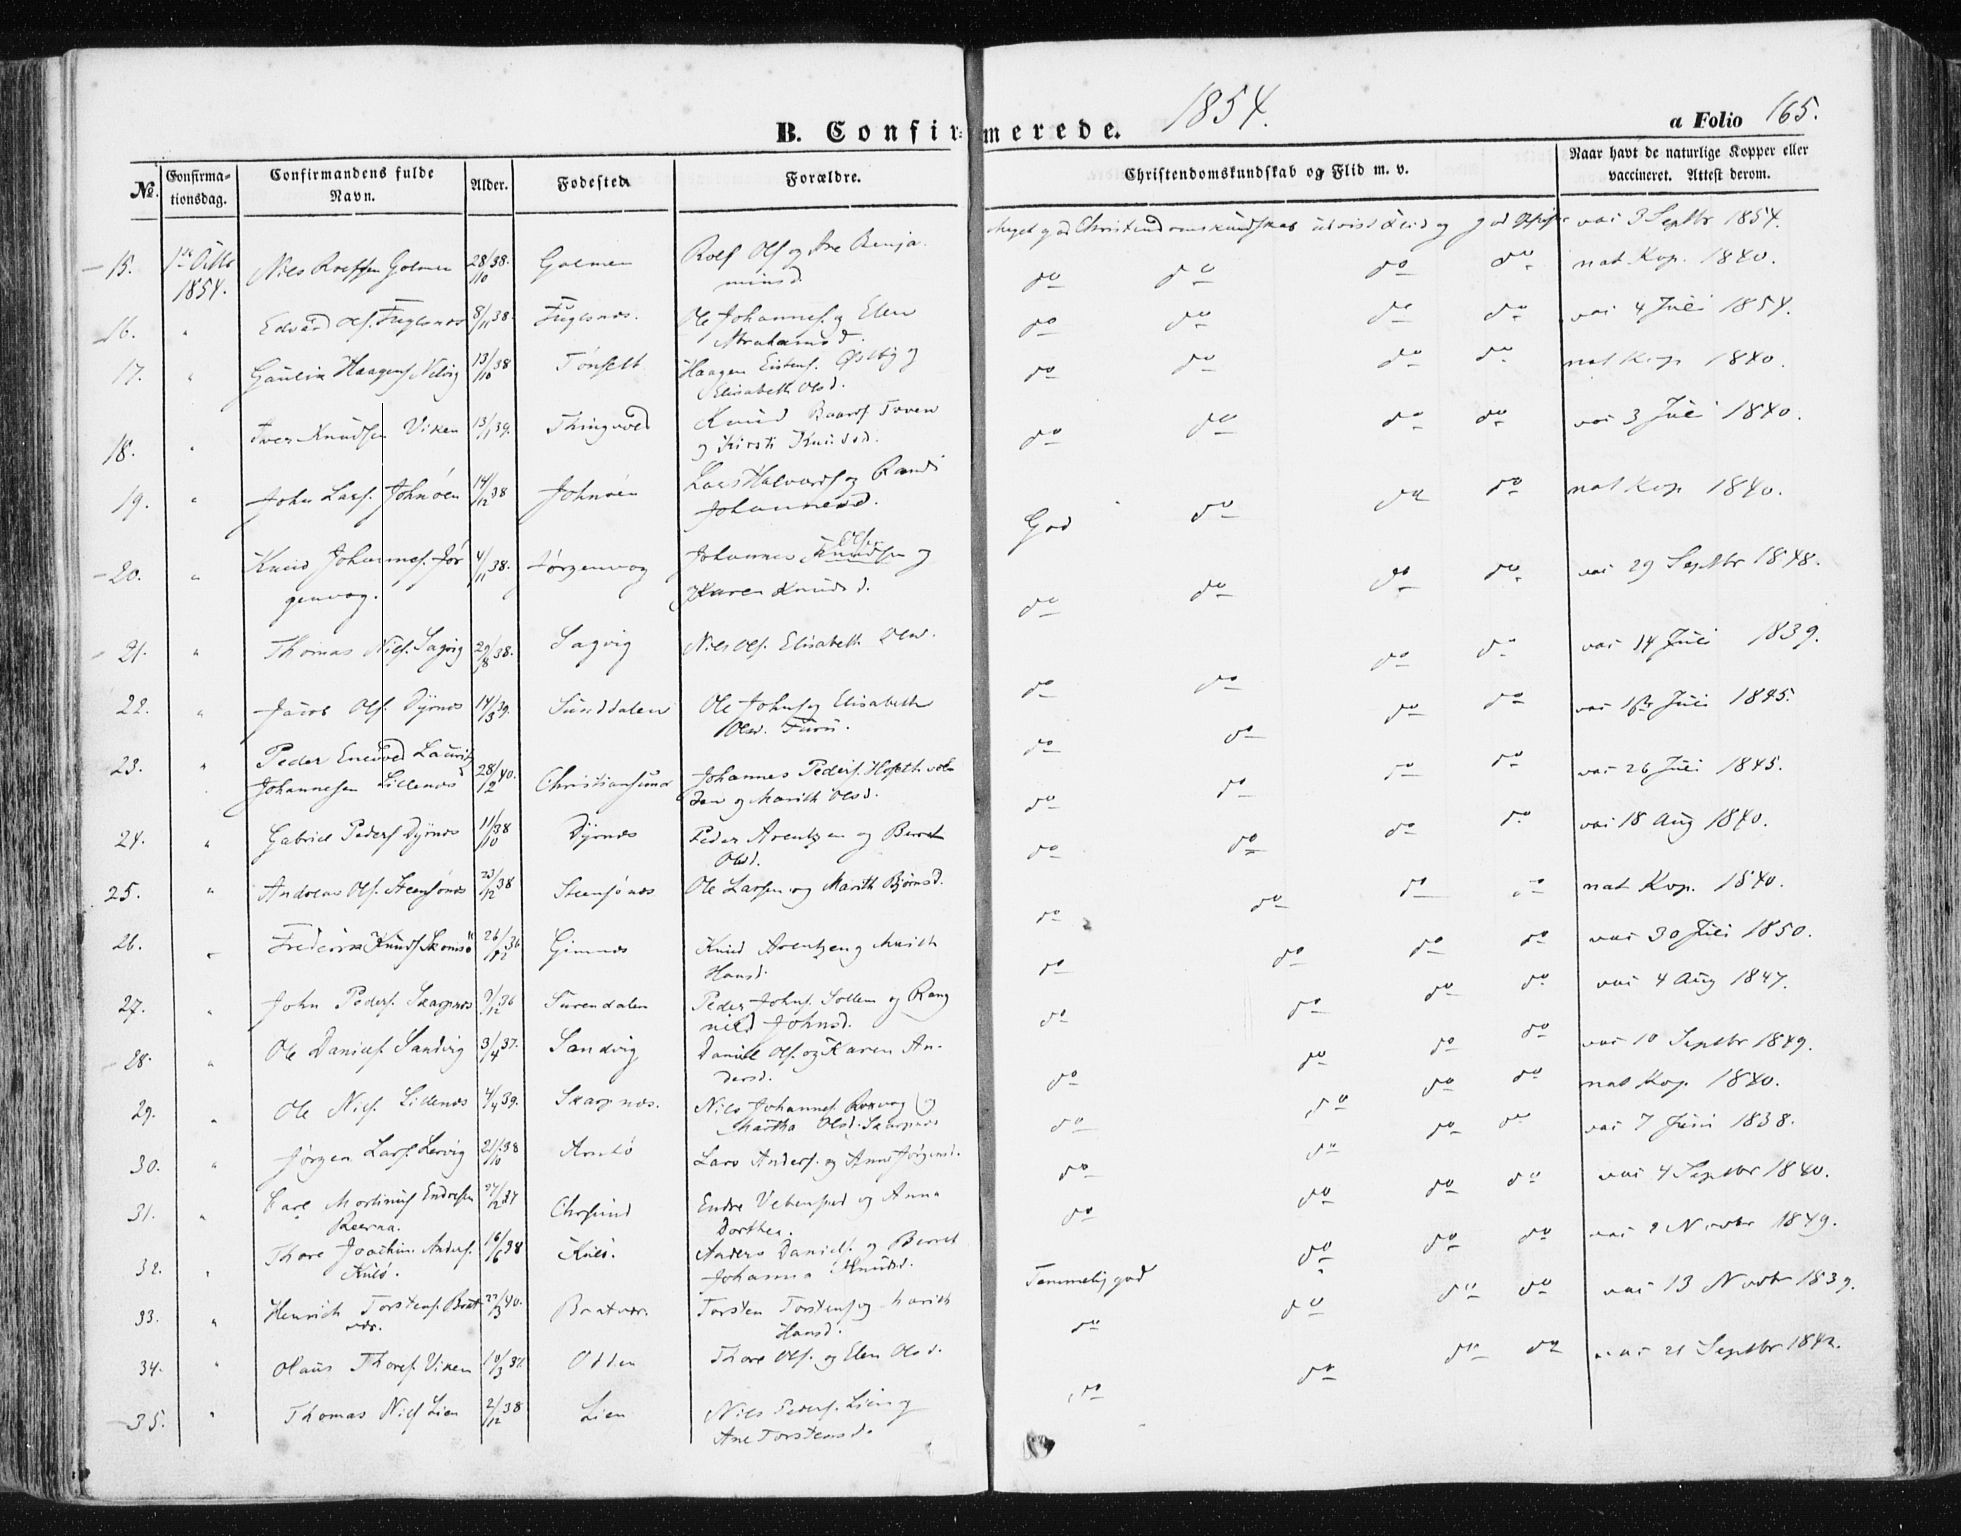 1854.
B. Confirmerede.
a Folio 165.
No. Confirmationsdag. Confirmandens fulde Navn. Alder. Fødested. Forældre. Christendomskundskab og Flid m. v. Naar havt de naturlige Kopper eller vaccineret. Attest derom.
15. 1ste Octbr 1854. Nils Rolfsen Golmen 28/10 38. Golmen Rolf Ols. og Ane Benjaminsd. Meget god Christendomskundskab udvist Flid og god vac 3 Septbr 1854.
16. " Edvard Ols. Fuglsnæs 8/11 38. Fuglsnæs. Ole Johannes. og Elen Abrahamsd. do do do do nat Kop. 1840.
17. " Haagens. 13/10 38 Haagen Eistens. Østby og Elisabeth Olsd. do do do do vac 4 Juli 1854.
18. " Iver Knudsen Viken 13/11 39. Thingvold Knud Baards. Tøven og Kirsti Knudsd. do do do do nat Kop 1840.
19. " John Lars. Johnøen 14/12 38 Johnøen Lars Halvords. og Randi Johannesd. do do do do vac 3 Juli 1840.
20. " Knud Johannes. Jørgenvog. 4/11 38. Jørgenvog Johannes Knudsen og Karen Knudsd. God do do do nat Kop 1840.
21. " Thomas Nils. Sagvig 29/8 38. Sagvig Nils Ols. Elisabeth Olsd. do do do do vac 29 Septbr 1848.
22. " Jacob Ols. Dyrnæs 14/3 39. Sunddalen Ole Johns. og Elisabeth Olsd. Furu. do do do do vac 14 Juli 1839.
23. " Peder Enevold Lauritz Johannesen Lillenæs 28/12 40. Christiansund Johannes Peders. og Marith Olsd. do do do do vac Juli 1845.
24. " Gabriel Peders. Dyrnæs 11/10 38 Dyrnæs Peder Arentzen og Berret Olsd. do do do do vac 26 Juli 1845.
25. " Andreas Ols. Steensønæs 23/12 38 Steensønæs Ole Larsen og Marith Bjørnsd. do do do do vac 18 Aug 1840.
26. " Frederik Knuds. 26/12 36 Gimnæs Knud Arentzen og Marith Hansd. do do do do nat Kop. 1840.
27. " John Peders. Skarpnæs 9/12 36 Surendalen Peder Johns. Sollem og Rangnild Johnsd. do do do do vac 30 Juli 1850.
28. " Ole Daniels. Sandvig 3/4 37. Sandvig Daniel Ols. og Karen Andersd. do do do do vac 4 Aug 1847.
29. " Ole Nils. Lillenæs 4/4 39. Skarpnæs. Nils Johannes. Roxvog og Martha Olsd. Skarpnæs do do do do vac 10 Septbr 1849.
30. " Jørgen Lars. Lervig 21/10 38 Arntø Lars Anders. og Anne Jørgensd. do do do do nat Kop. 1840.
31. " Carl Martinus Endresen 27/12 37 Chrsund Endre og Anna Dorthea. do do do do vac 7 Juni 1838.
32. " Thore Joachim Anders. Kulø. 16/6 38 Kulø. Anders Daniels. og Berret Johanna Knudsd. do do do do vac 4 Septbr 1840.
33. " Henrich Torstens. Bratvær. 22/3 40. Bratvær. Torsten Torstens. og Marith Hansd. Temmelig god do do do vac 2 Novbr 1849.
34. " Olaus Thores. Viken 10/3 37. Odden Thore Ols. og Elen Olsd. do do do do vac 13 Novbr 1839.
35. " Thomas Nils. Lien 2/12 38 Lien Nils Peders. Lien og Ane Torstensd. do do do do vac 21 Septbr 1842.